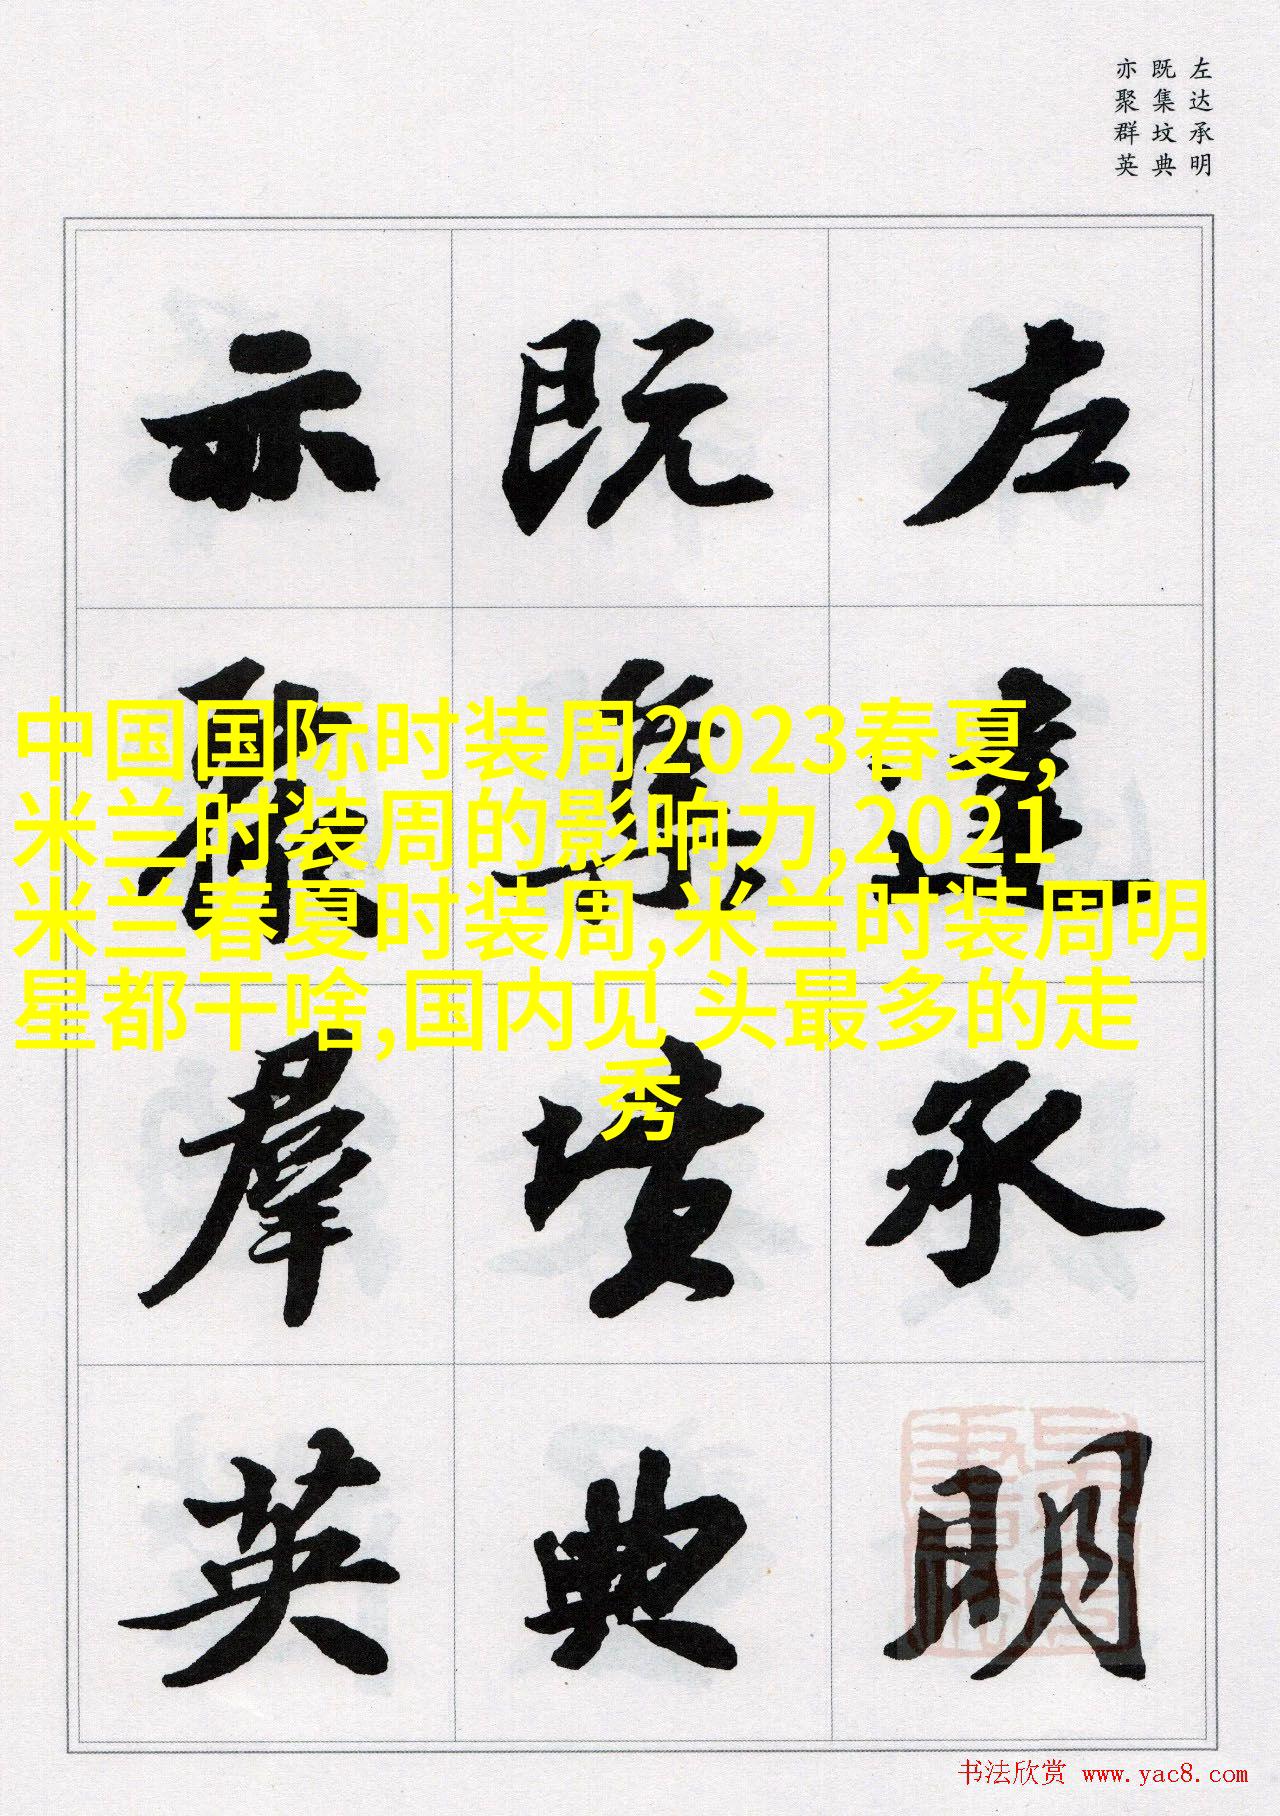 左达承明
既集坟典
亦聚群英
左達承明
既集墳典
亦聚羣英
中国国际时装周2023春夏,
米兰时装周的影响力,2021
米兰春夏时装周,米兰时装周明
星都干啥,国内见 头最多的走
秀
书法欣赏 www.yac8.com